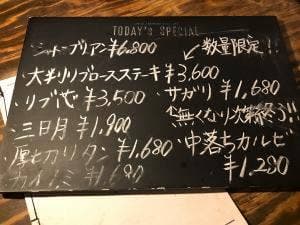 TODAY's SPECIAL
シャトーブリアン ¥6.800
数量限定!!
大判リブロースステーキ ¥3,600
リブ芯 ¥3,500
サガリ ¥1,680
↑無くなり次第終了!!
三日月 ¥1,900
中落ちカルビ
¥1,280
厚切カリタン ¥1,680
カイノミ ¥1,680